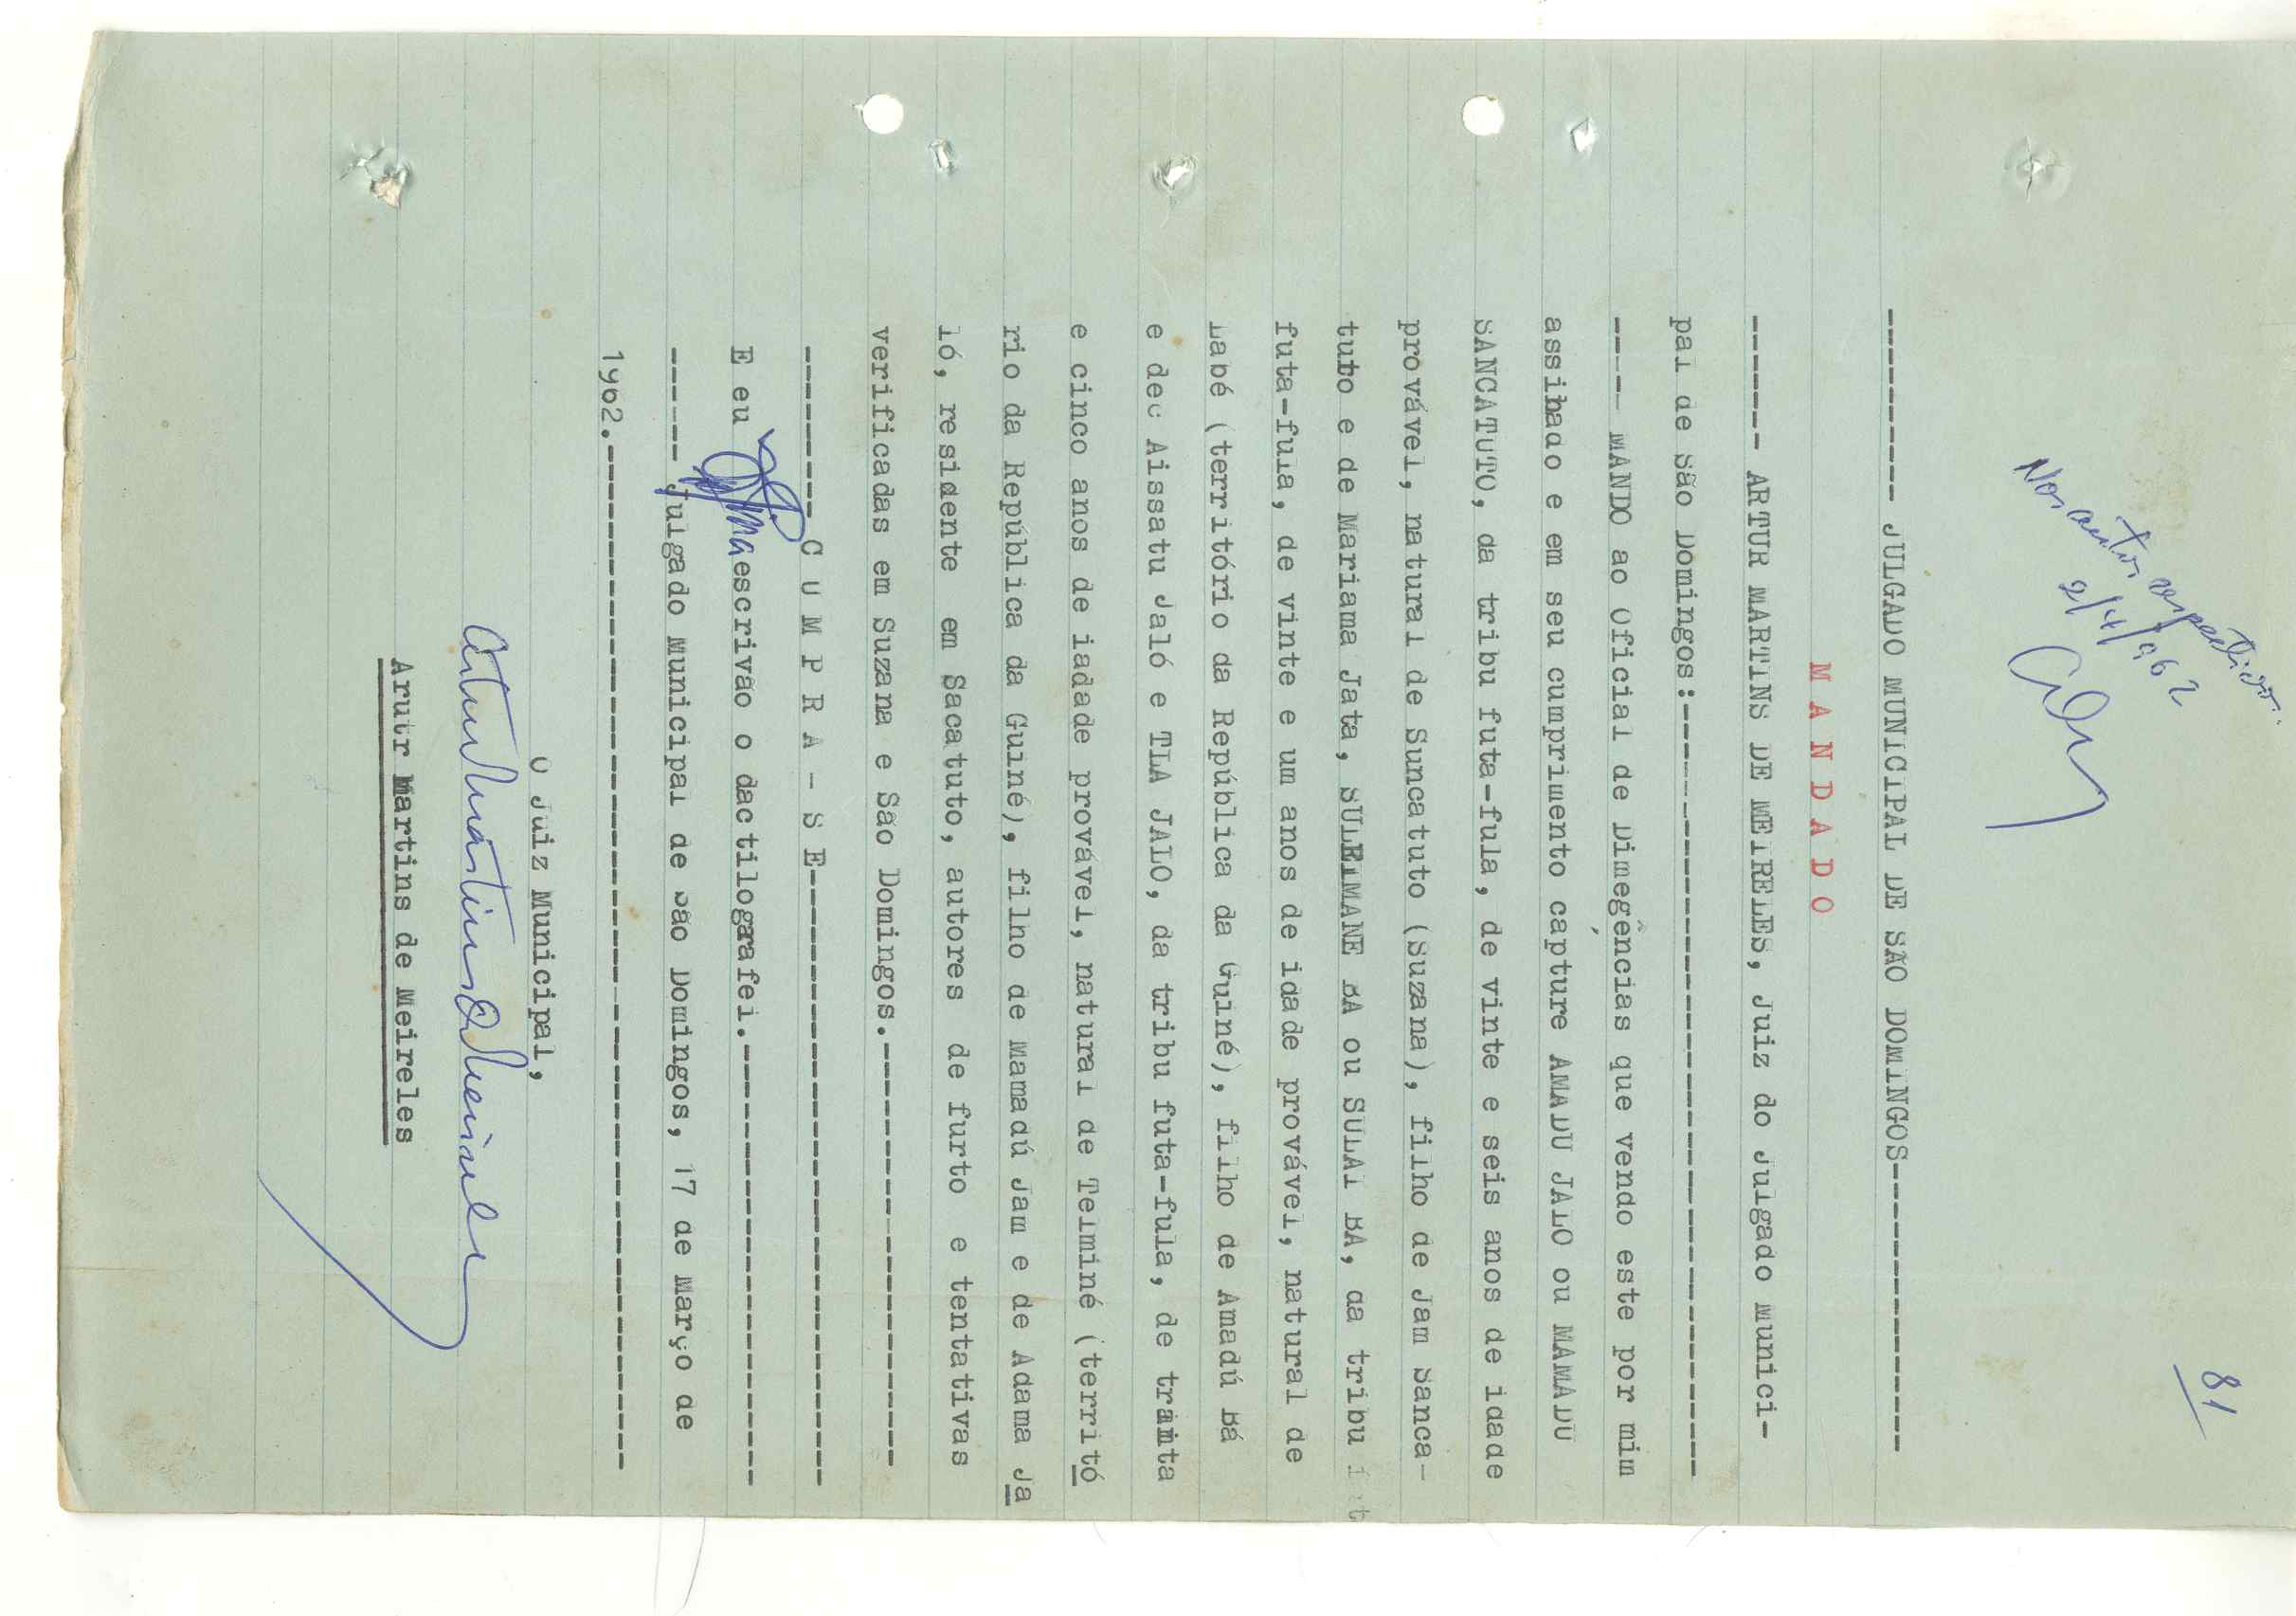 81
Nos autos respectivos.
2/4/962
--------- JULGADO MUNICIPAL DE SÃO DOMINGOS--------------
M A N D A D O
------ ARTUR MARTINS DE MEIRELES, Juiz do Julgado Munici-
pal de São Domingos:----------------------------------
---- MANDO ao Oficial de Dimegências que vendo este por mim
assinado e em seu cumprimento capture AMADU JALO ou MAMADU
SANCATUTO, da tribu futa-fula, de vinte e seis anos de idade
provável, natural de Suncatuto (Suzana), filho de Jam Sanca-
tuto e de Mariama Jata, SULEIMANE BA ou SULAI BA, da tribu
futa-fula, de vinte e um anos de idade provável, natural de
Labé (território da República da Guiné), filho de Amadú Bá
e dec Aissatu Jaló e TLA JALO, da tribu futa-fula, de trinta
e cinco anos de iadade provável, natural de Telminé (territó
rio da República da Guiné), filho de Mamadú Jam e de Adama Ja
ló, residente em Sacatuto, autores de furto e tentativas
verificadas em Suzana e São Domingos.----------------------
-------- C U M P R A - S E-------------------------------
E eu escrivão o dactilografei.----------------------
------ Julgado Municipal de São Domingos, 17 de Março de
1962.--------------------------------------------------
O Juiz Municipal,
Artur Martins de Meireles
Arutr Martins de Meireles